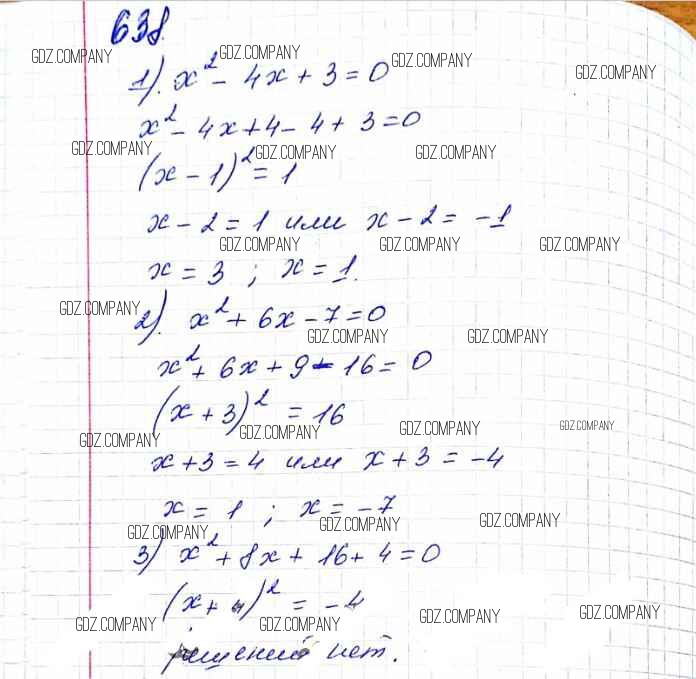 638.
GDZ.COMPANY GDZ.COMPANY GDZ.COMPANY GDZ.COMPANY
1). x² - 4x + 3 = 0
x² - 4x + 4 - 4 + 3 = 0
GDZ.COMPANY GDZ.COMPANY GDZ.COMPANY
(x - 1)² = 1
x - 2 = 1 или x - 2 = -1
GDZ.COMPANY GDZ.COMPANY GDZ.COMPANY
x = 3 ; x = 1.
GDZ.COMPANY
2). x² + 6x - 7 = 0
GDZ.COMPANY GDZ.COMPANY
x² + 6x + 9 - 16 = 0
(x + 3)² = 16
GDZ.COMPANY GDZ.COMPANY GDZ.COMPANY GDZ.COMPANY
x + 3 = 4 или x + 3 = -4
x = 1 ; x = -7
GDZ.COMPANY GDZ.COMPANY GDZ.COMPANY
3) x² + 8x + 16 + 4 = 0
(x + 4)² = -4
GDZ.COMPANY GDZ.COMPANY GDZ.COMPANY GDZ.COMPANY
решений нет.